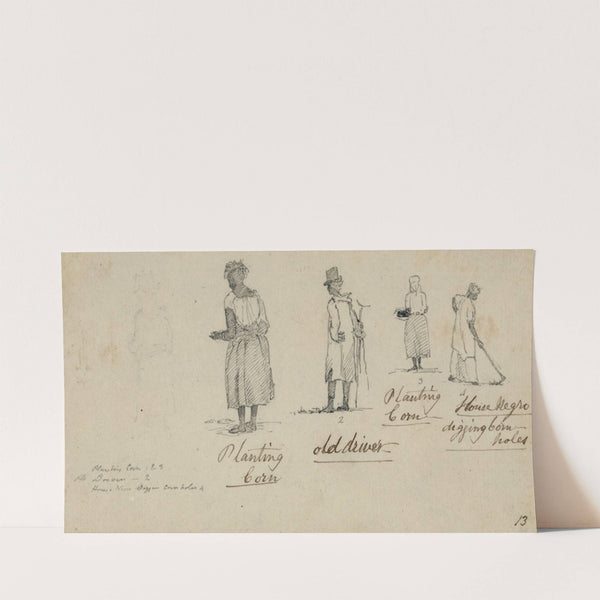 2
3
4
Planting
Corn
old driver
Planting
Corn
House Negro
digging Corn
holes
Planting Corn 1 & 3
Old Driver - 2
House Negro Diggin Corn holes 4
13